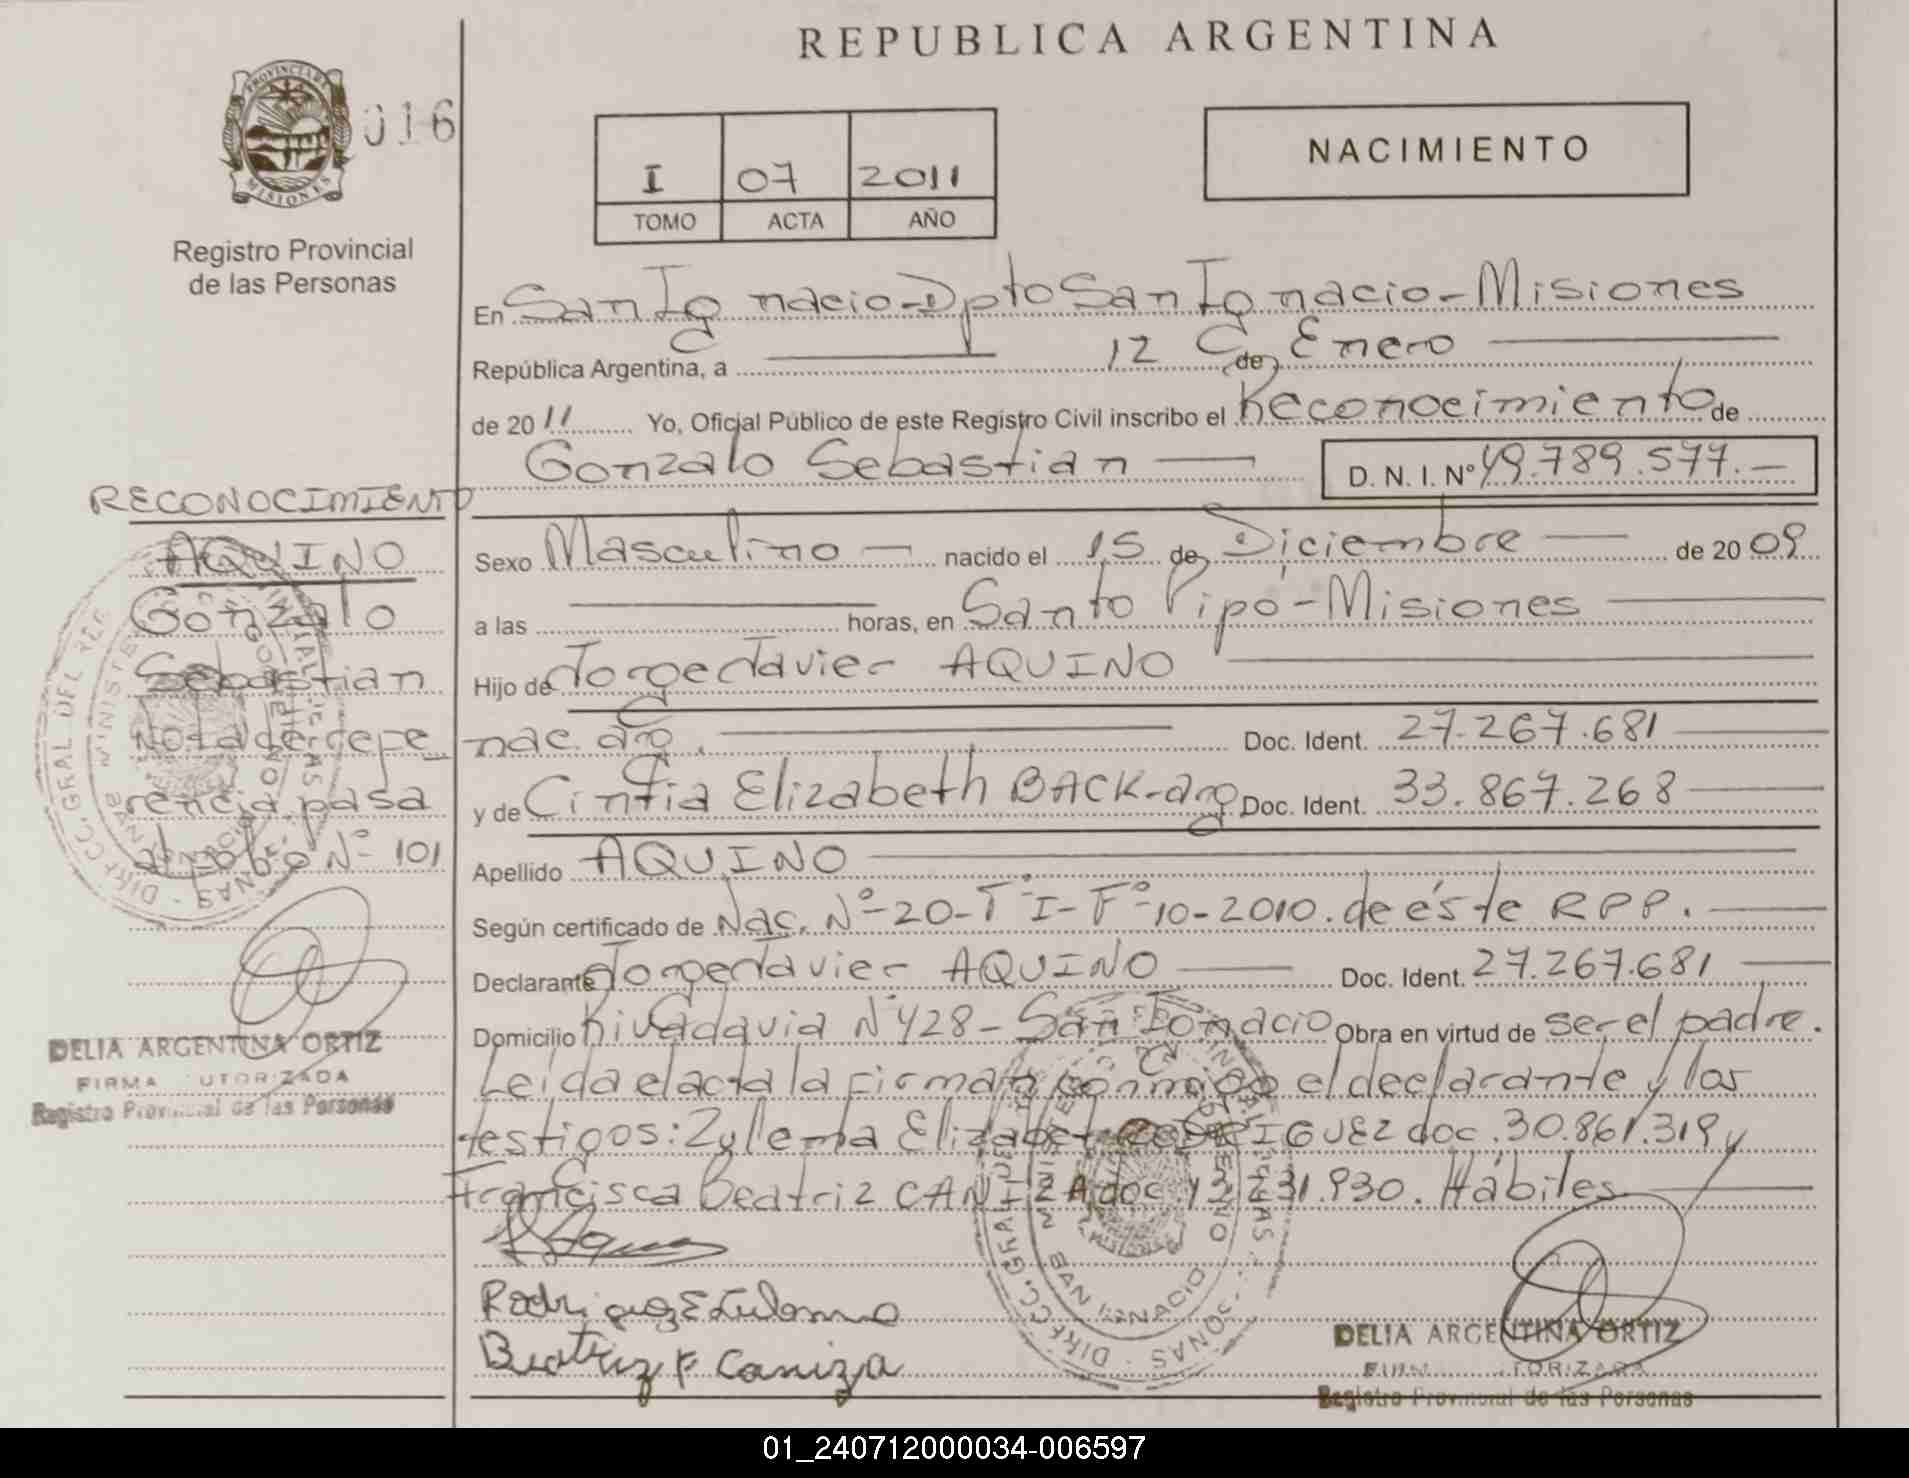 REPUBLICA ARGENTINA
PROVINCIA DE
MISIONES
016
Registro Provincial
de las Personas
I 07 2011
TOMO ACTA AÑO
NACIMIENTO
En San Ignacio-Dpto San Ignacio-Misiones
República Argentina, a 12 de Enero
de 2011 Yo, Oficial Público de este Registro Civil inscribo el Reconocimiento de
Gonzalo Sebastian D. N. I. Nº 49.789.577.-
Sexo Masculino nacido el 15 de Diciembre de 2009
a las horas, en Santo Pipó-Misiones
Hijo de Jorge Javier AQUINO
nac. arg. Doc. Ident. 27.267.681
y de Cintia Elizabeth BACK-arg Doc. Ident. 33.867.268
Apellido AQUINO
Según certificado de Nac. Nº-20-TºI-Fº-10-2010. de éste RPP.
Declarante Jorge Javier AQUINO Doc. Ident. 27.267.681
Domicilio Rivadavia Nº428-San Ignacio Obra en virtud de ser el padre.
Leída el acta la firman conmigo el declarante y los
testigos: Zullema Elizabet RODRIGUEZ doc. 30.861.319 y
Francisca Beatriz CANIZA doc. 13.231.930. Hábiles
Beatriz F Caniza
DELIA ARGENTINA ORTIZ
FIRMA AUTORIZADA
Registro Provincial de las Personas
RECONOCIMIENTO
AQUINO
Gonzalo
Sebastian
Nota de refe
rencia pasa
al folio Nº 101
DELIA ARGENTINA ORTIZ
FIRMA AUTORIZADA
Registro Provincial de las Personas
01_240712000034-006597